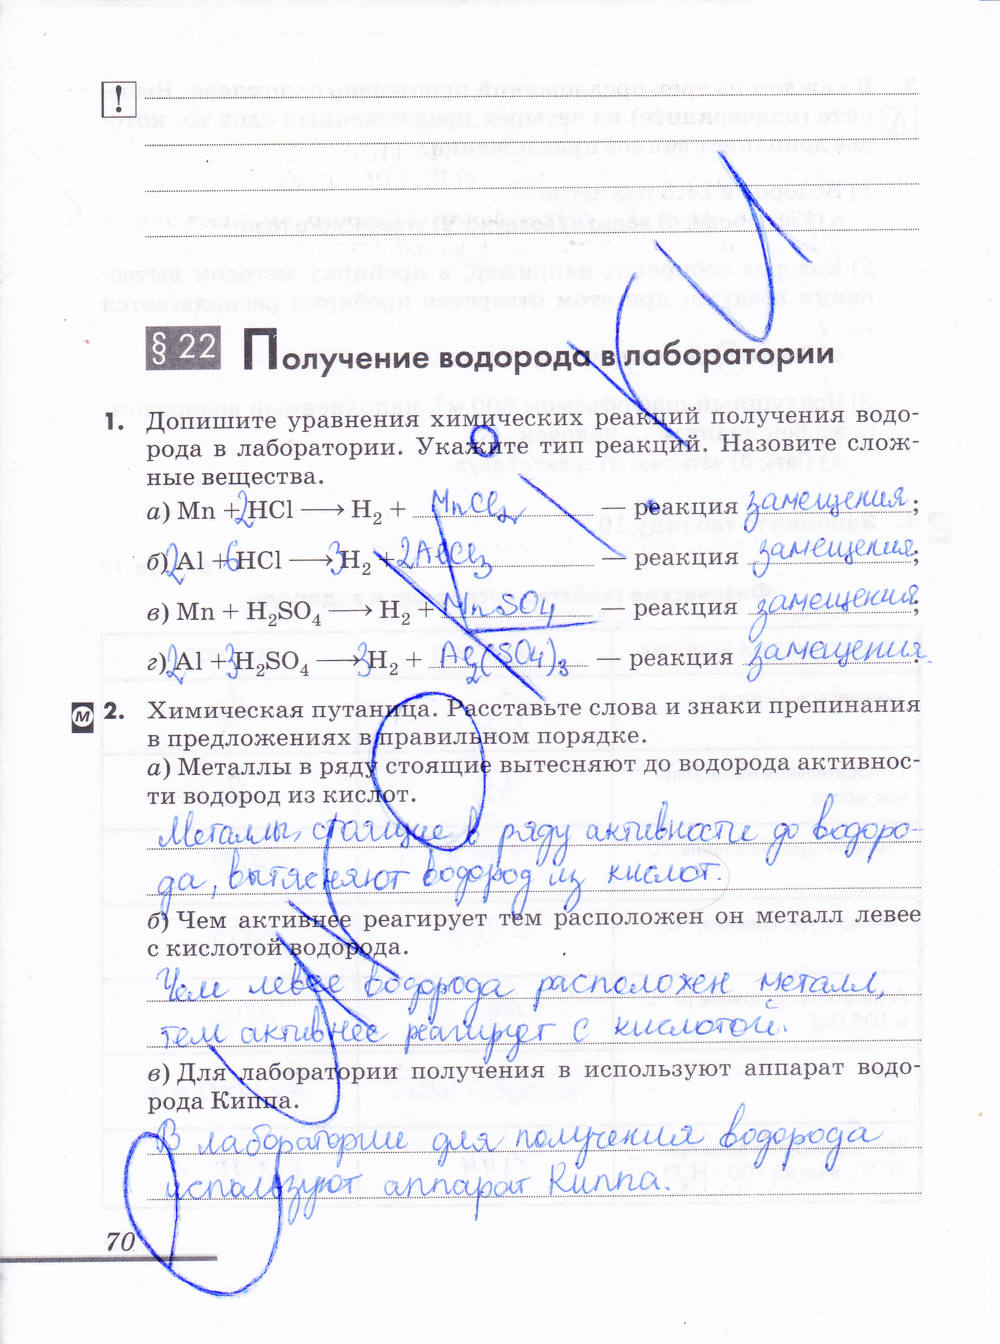 !
§ 22 Получение водорода в лаборатории
1. Допишите уравнения химических реакций получения водо-
рода в лаборатории. Укажите тип реакций. Назовите слож-
ные вещества.
а) Mn + 2HCl ⟶ H₂ + MnCl₂ — реакция замещения;
б) 2Al + 6HCl ⟶ 3H₂ + 2AlCl₃ — реакция замещения;
в) Mn + H₂SO₄ ⟶ H₂ + MnSO₄ — реакция замещения;
г) 2Al + 3H₂SO₄ ⟶ 3H₂ + Al₂(SO₄)₃ — реакция замещения.
М 2. Химическая путаница. Расставьте слова и знаки препинания
в предложениях в правильном порядке.
а) Металлы в ряду стоящие вытесняют до водорода активнос-
ти водород из кислот.
Металлы, стоящие в ряду активности до водоро-
да, вытясняют водород из кислот.
б) Чем активнее реагирует тем расположен он металл левее
с кислотой водорода.
Чем левее водорода расположен металл,
тем активнее реагирует с кислотой.
в) Для лаборатории получения в используют аппарат водо-
рода Киппа.
В лаборатории для получения водорода
используют аппарат Киппа.
70